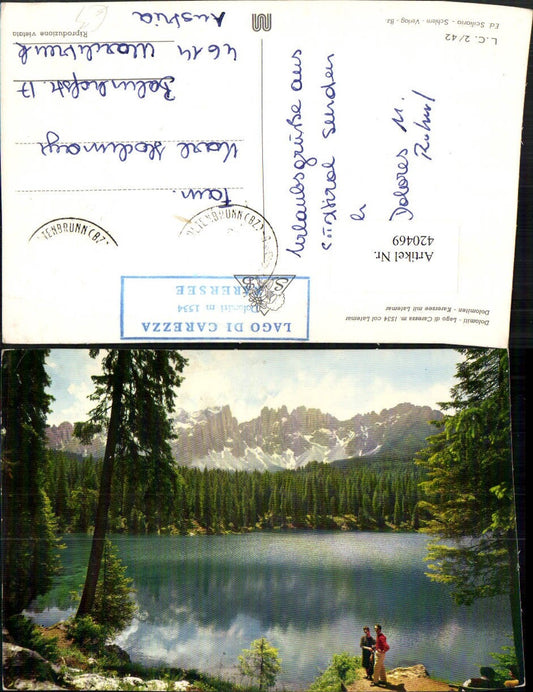 Dolomiti - Lago di Carezza m. 1534 col Latemar
Dolomiten - Karersee mit Latemar
LAGO DI CAREZZA
Dolomiti m 1534
KARERSEE
Artikel Nr.
420469
Urlaubsgrüße aus
Südtirol senden
Dolores u.
Fam.
Karl
Bahnhofstr. 17
4614 Marchtrenk
Austria
L. C. 2/42
Ed. Sciliaria - Schlern - Verlag - Bz
Riproduzione vietata